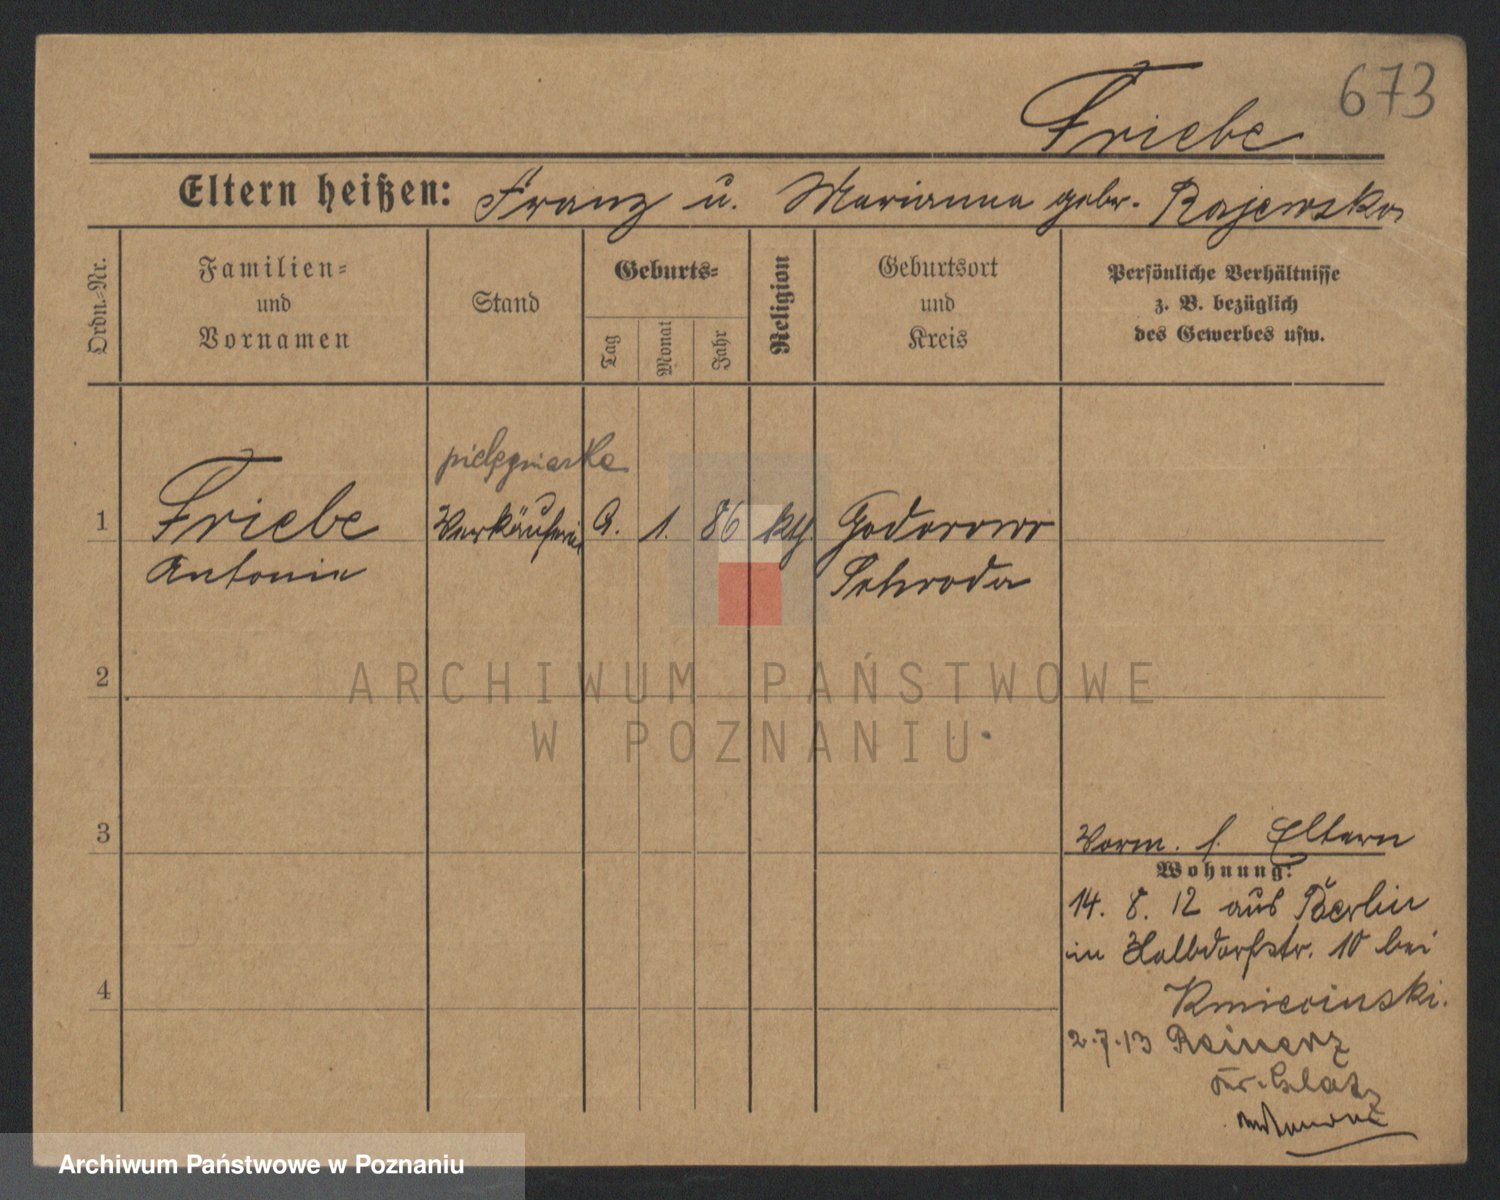 673
Friebe
Eltern heißen: Franz u. Marianna gebr. Rajewska
Ordn.-Nr.
Familien-
und
Vornamen
Stand
Geburts-
Tag
Monat
Jahr
Religion
Geburtsort
und
Kreis
Persönliche Verhältnisse
z. B. bezüglich
des Gewerbes usw.
pielęgniarka
1 Friebe Verkäuferin 1. 86 kth.
Antonie Schroda
2
3
Vorm. f. Eltern
Wohnung:
14. 8. 12 aus Berlin
in Halbdorfstr. 10 bei
Kmiecinski.
4
2.7.13 Reinerz
Kr. Glatz
ARCHIWUM PAŃSTWOWE
W POZNANIU
Archiwum Państwowe w Poznaniu